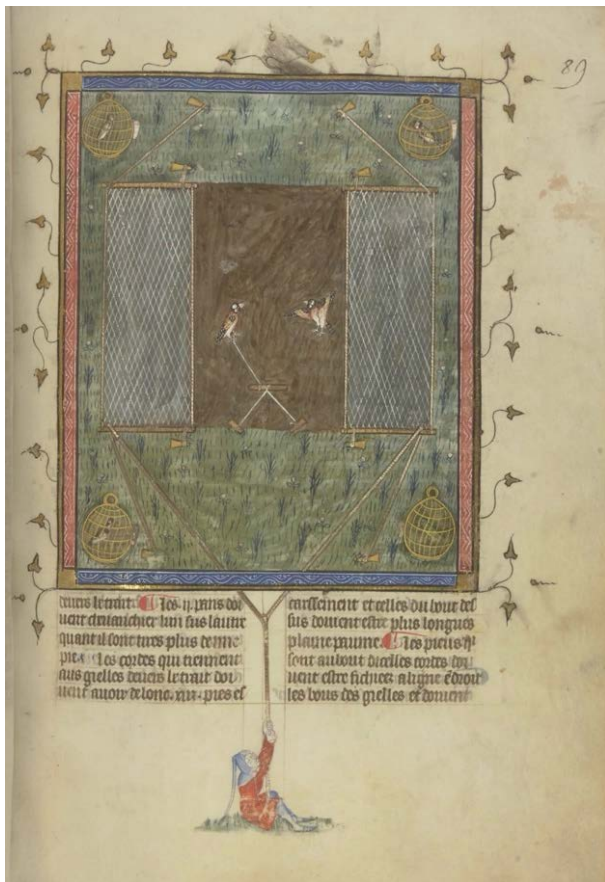 89
deuers le trait ¶ Les .ij. pans doi
uent cheuauchier lun sus lautre
quant il sont tires plus de
pie Les cordes qui tiennent
aus guelles deuers le trait doi
uent auoir de lonc pies et
et celles du bout des
sus doiuent estre plus longues
plaine paume ¶ Les pieus q̄
sont au bout dicelles cordes doi
uent estre fichiez a ligne ẽdroit
les bous des guelles et doiuent